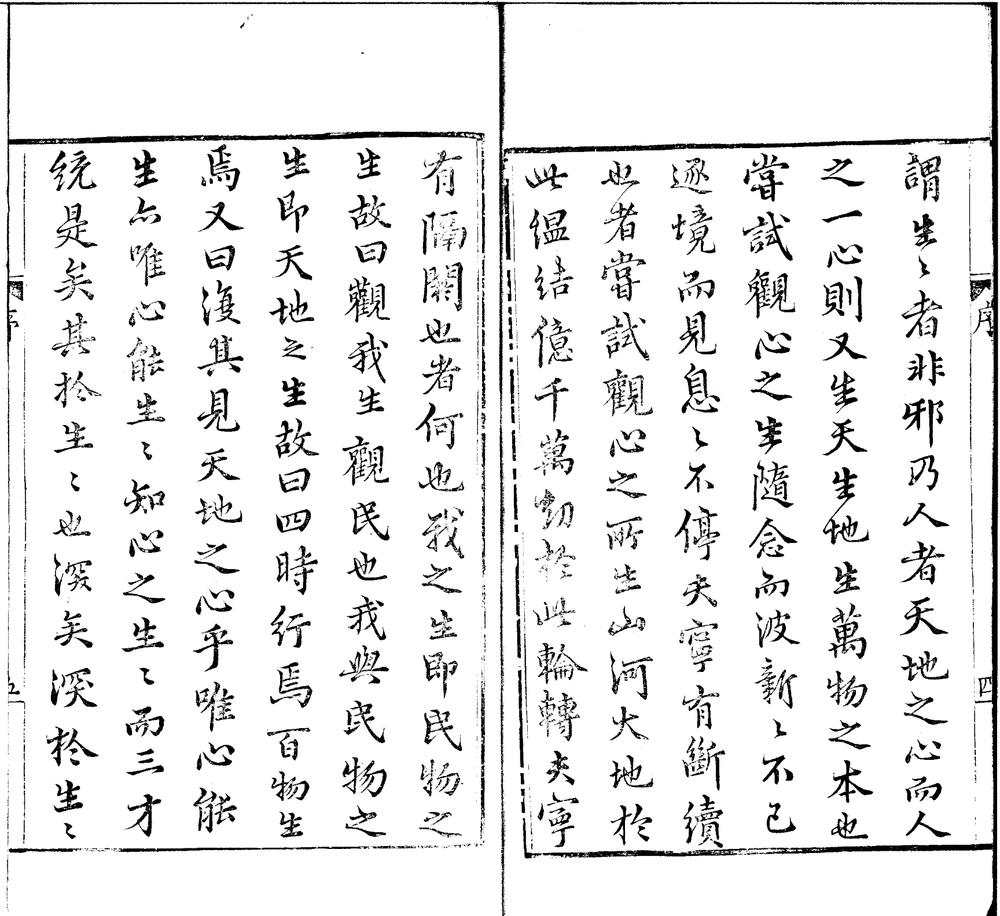 謂生〻者非邪乃人者天地之心而人
之一心則又生天生地生萬物之本也
嘗試觀心之生隨念而波新〻不已
逐境而見息〻不停夫寧有斷續
也者嘗試觀心之所生山河大地於
此緼結億千萬刼於此輪轉夫寧
序
四
有隔閡也者何也我之生即民物之
生故曰觀我生觀民也我與民物之
生即天地之生故曰四時行焉百物生
焉又曰復其見天地之心乎唯心能
生亦唯心能生〻知心之生〻而三才
統是矣其於生〻也深矣深於生〻
序
五